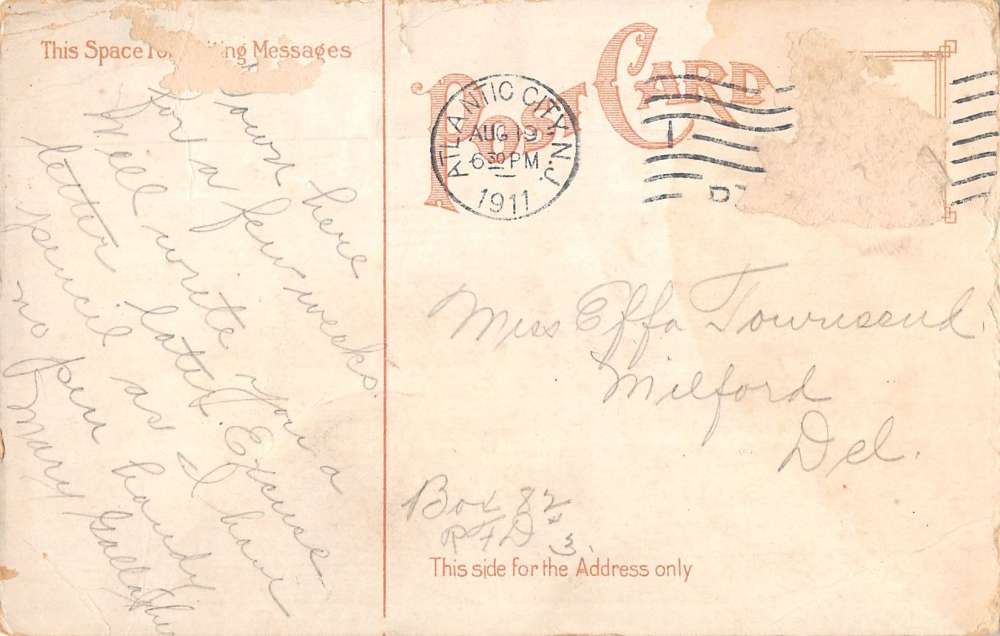 This Space for Writing Messages
down here
for a few weeks.
Will write you a
letter later. Excuse
pencil as I have
no pen handy
Mary Gallagher
POST CARD
ATLANTIC CITY, N.J.
AUG 19
6 30 PM
1911
Miss Effa Townsend.
Milford
Del.
Box 82
RFD 3.
This side for the Address only